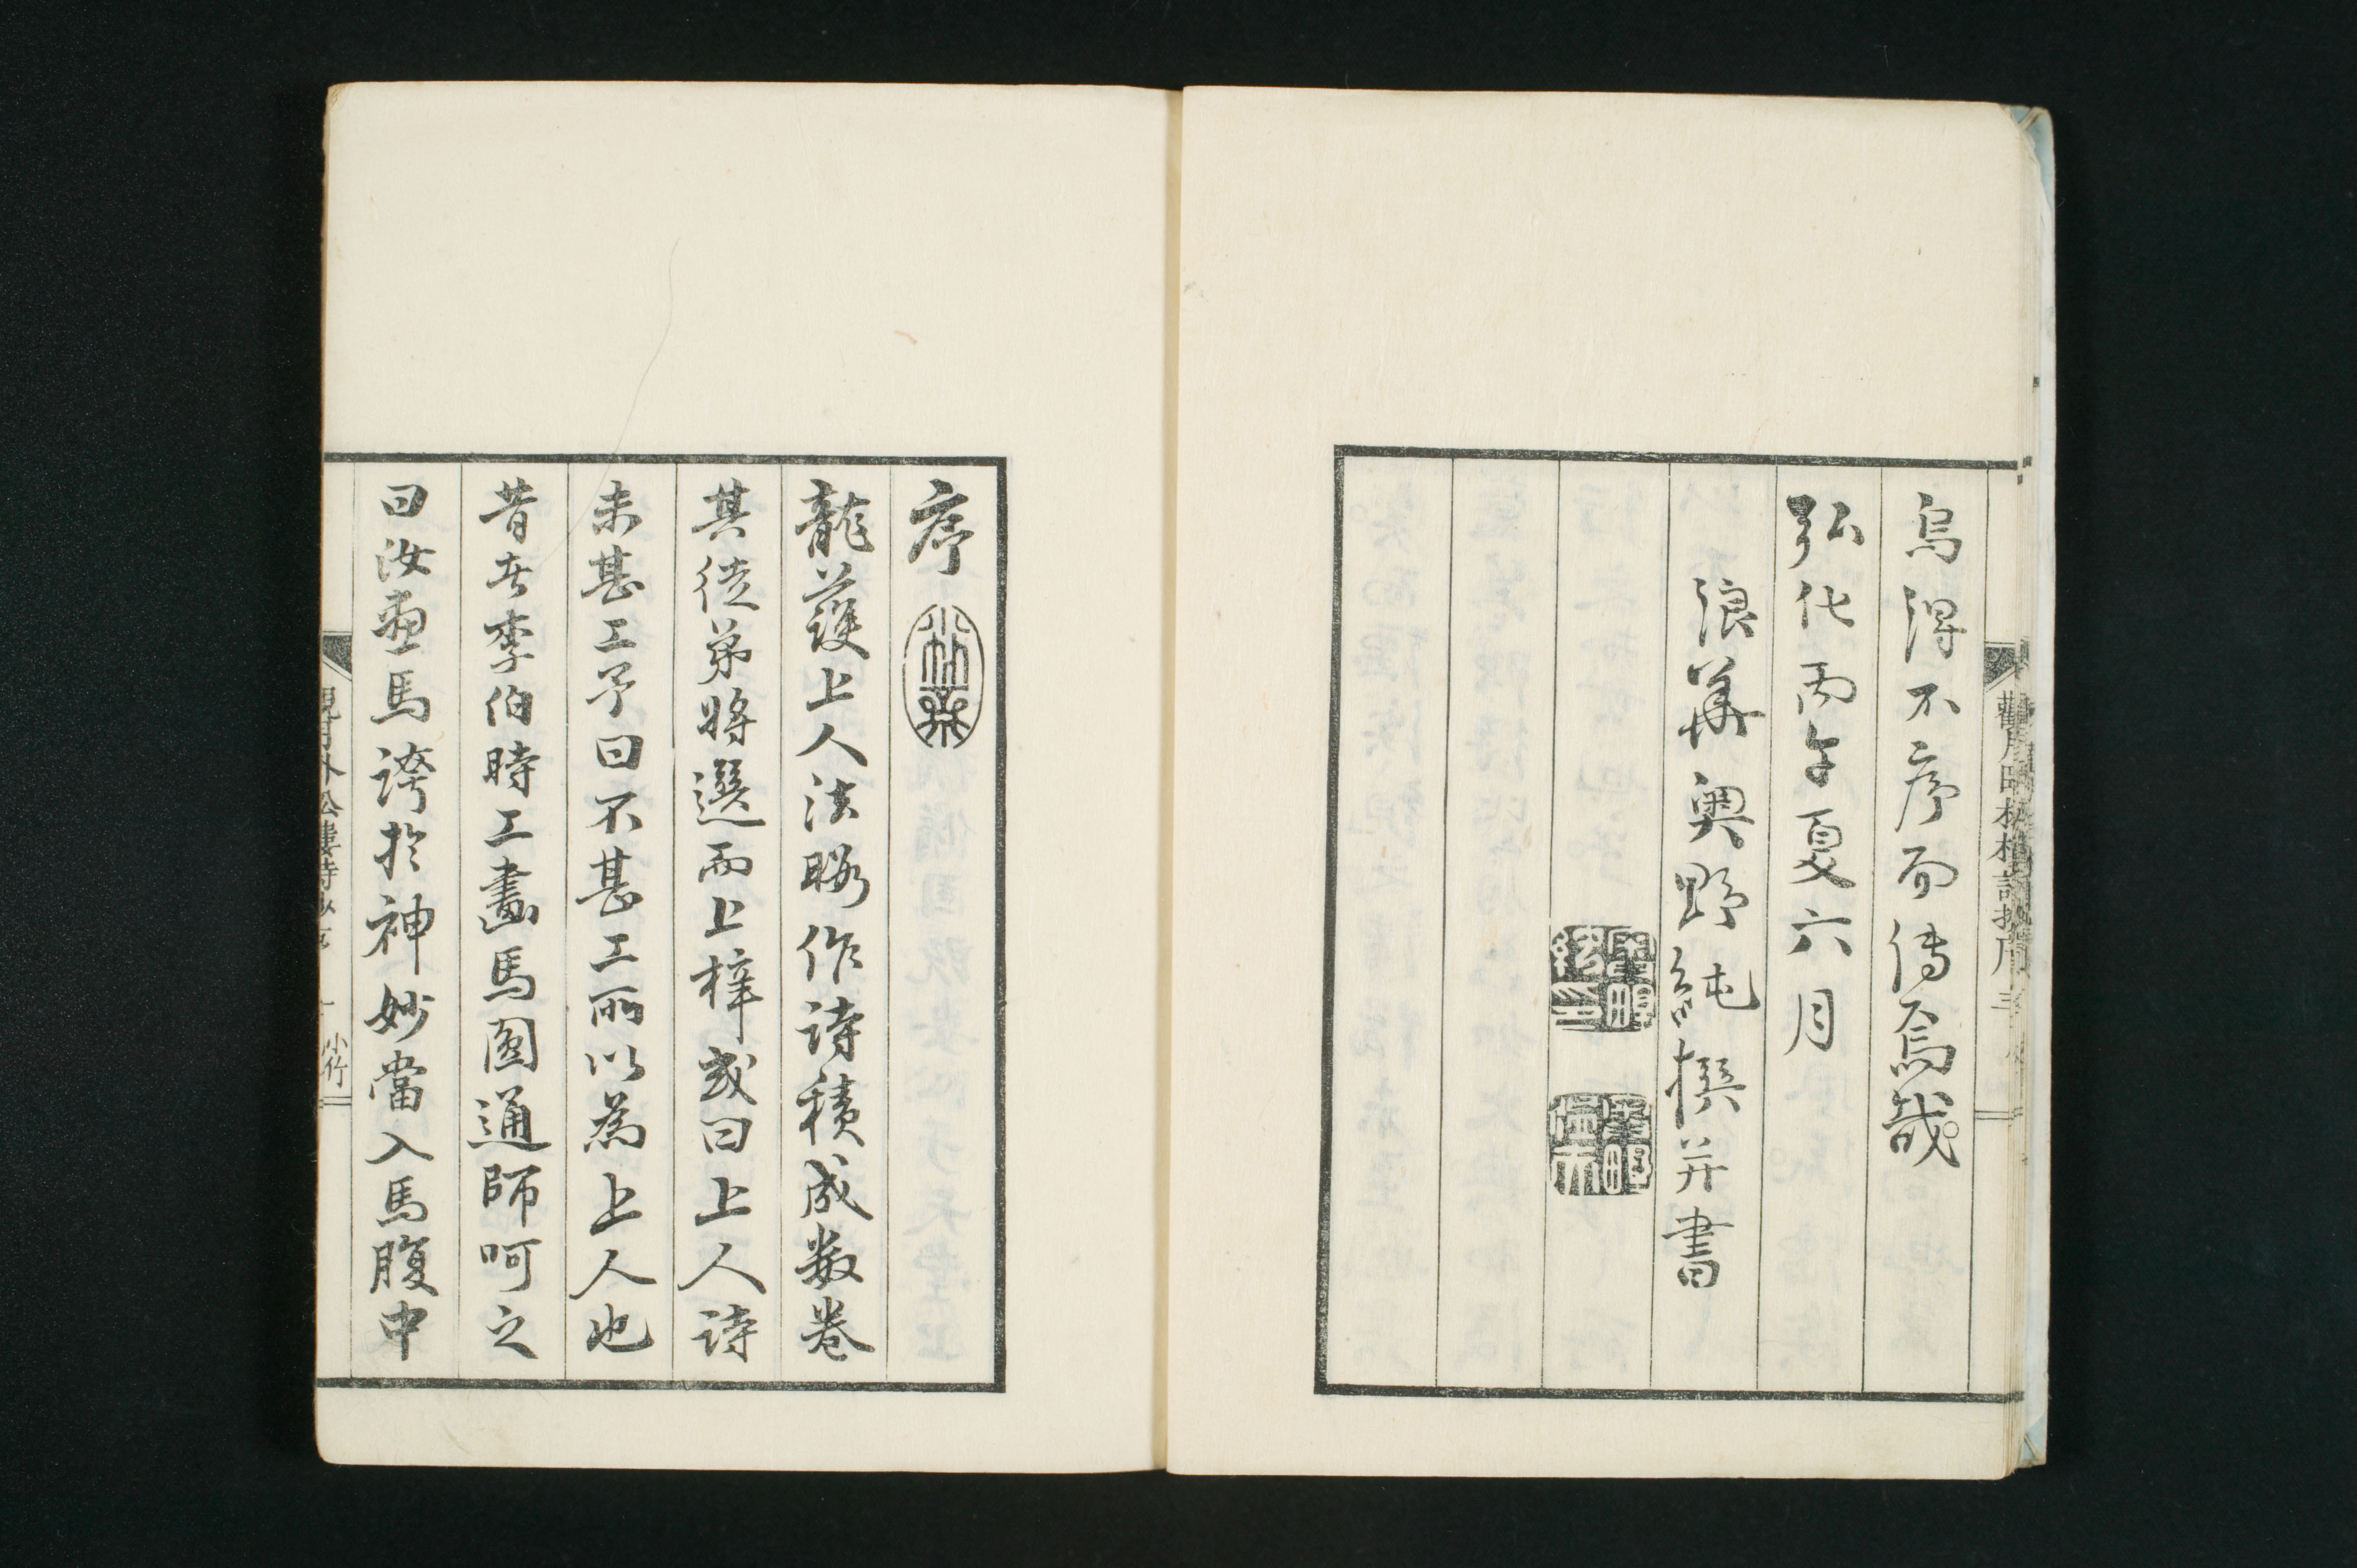 烏得不序而傳焉哉
弘化丙午夏六月
浪華奥野純撰并書
序
龍護上人法暇作詩積成数巻
其徒弟將選而上梓或曰上人詩
未甚工予曰不甚工所以為上人也
昔者李伯時工畫馬圓通師呵之
曰汝畫馬誇於神妙當入馬腹中
小竹